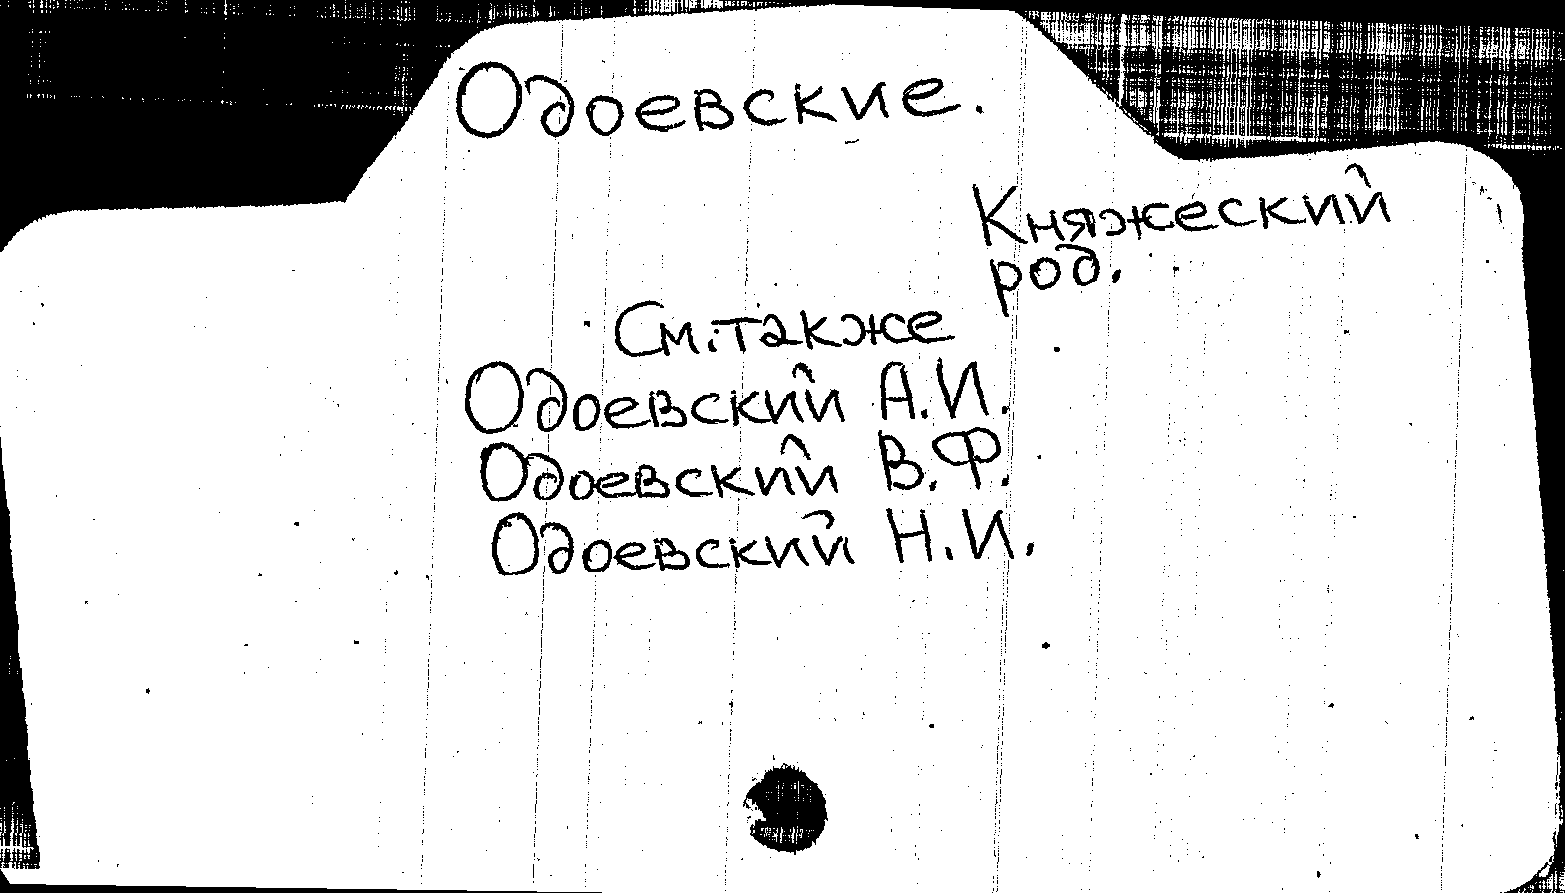 Одоевские.
Княжеский
род.
См. также
Одоевский А.И.
Одоевский В.Ф.
Одоевский Н.И.